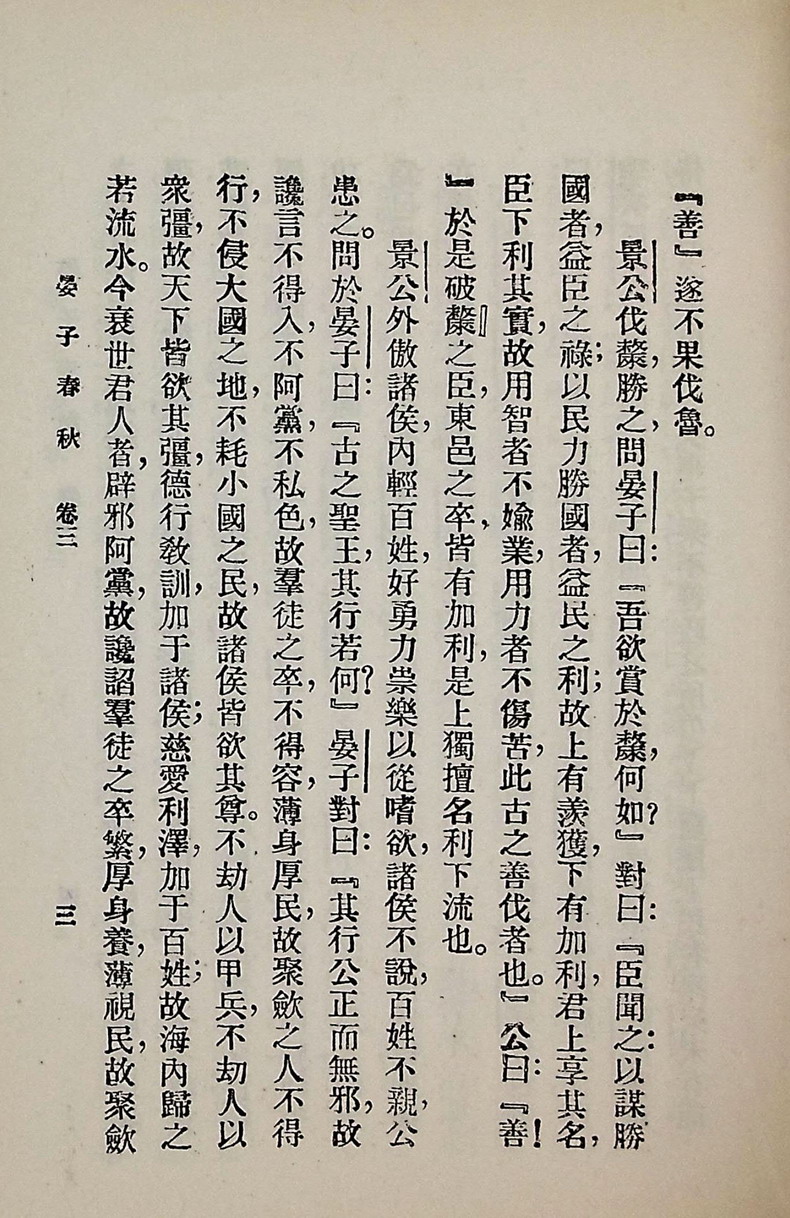 『善』遂不果伐魯。
景公伐斄，勝之，問晏子曰：『吾欲賞於斄，何如？』對曰：『臣聞之：以謀勝
國者，益臣之祿；以民力勝國者，益民之利；故上有羨獲，下有加利，君上享其名，
臣下利其實，故用智者不婾業，用力者不傷苦，此古之善伐者也。』公曰：『善！
』於是破斄之臣，東邑之卒，皆有加利，是上獨擅名利下流也。
景公外傲諸侯，內輕百姓，好勇力崇樂以從嗜欲，諸侯不說，百姓不親，公
患之。問於晏子曰：『古之聖王，其行若何？』晏子對曰：『其行公正而無邪，故
讒言不得入，不阿黨，不私色，故羣徒之卒，不得容，薄身厚民，故聚斂之人不得
行，不侵大國之地，不耗小國之民，故諸侯皆欲其尊。不劫人以甲兵，不刧人以
衆彊，故天下皆欲其彊，德行教訓，加于諸侯；慈愛利澤，加于百姓；故海內歸之
若流水。今衰世君人者，辟邪阿黨，故讒諂羣徒之卒繁，厚身養，薄視民，故聚斂
晏子春秋 卷三
三